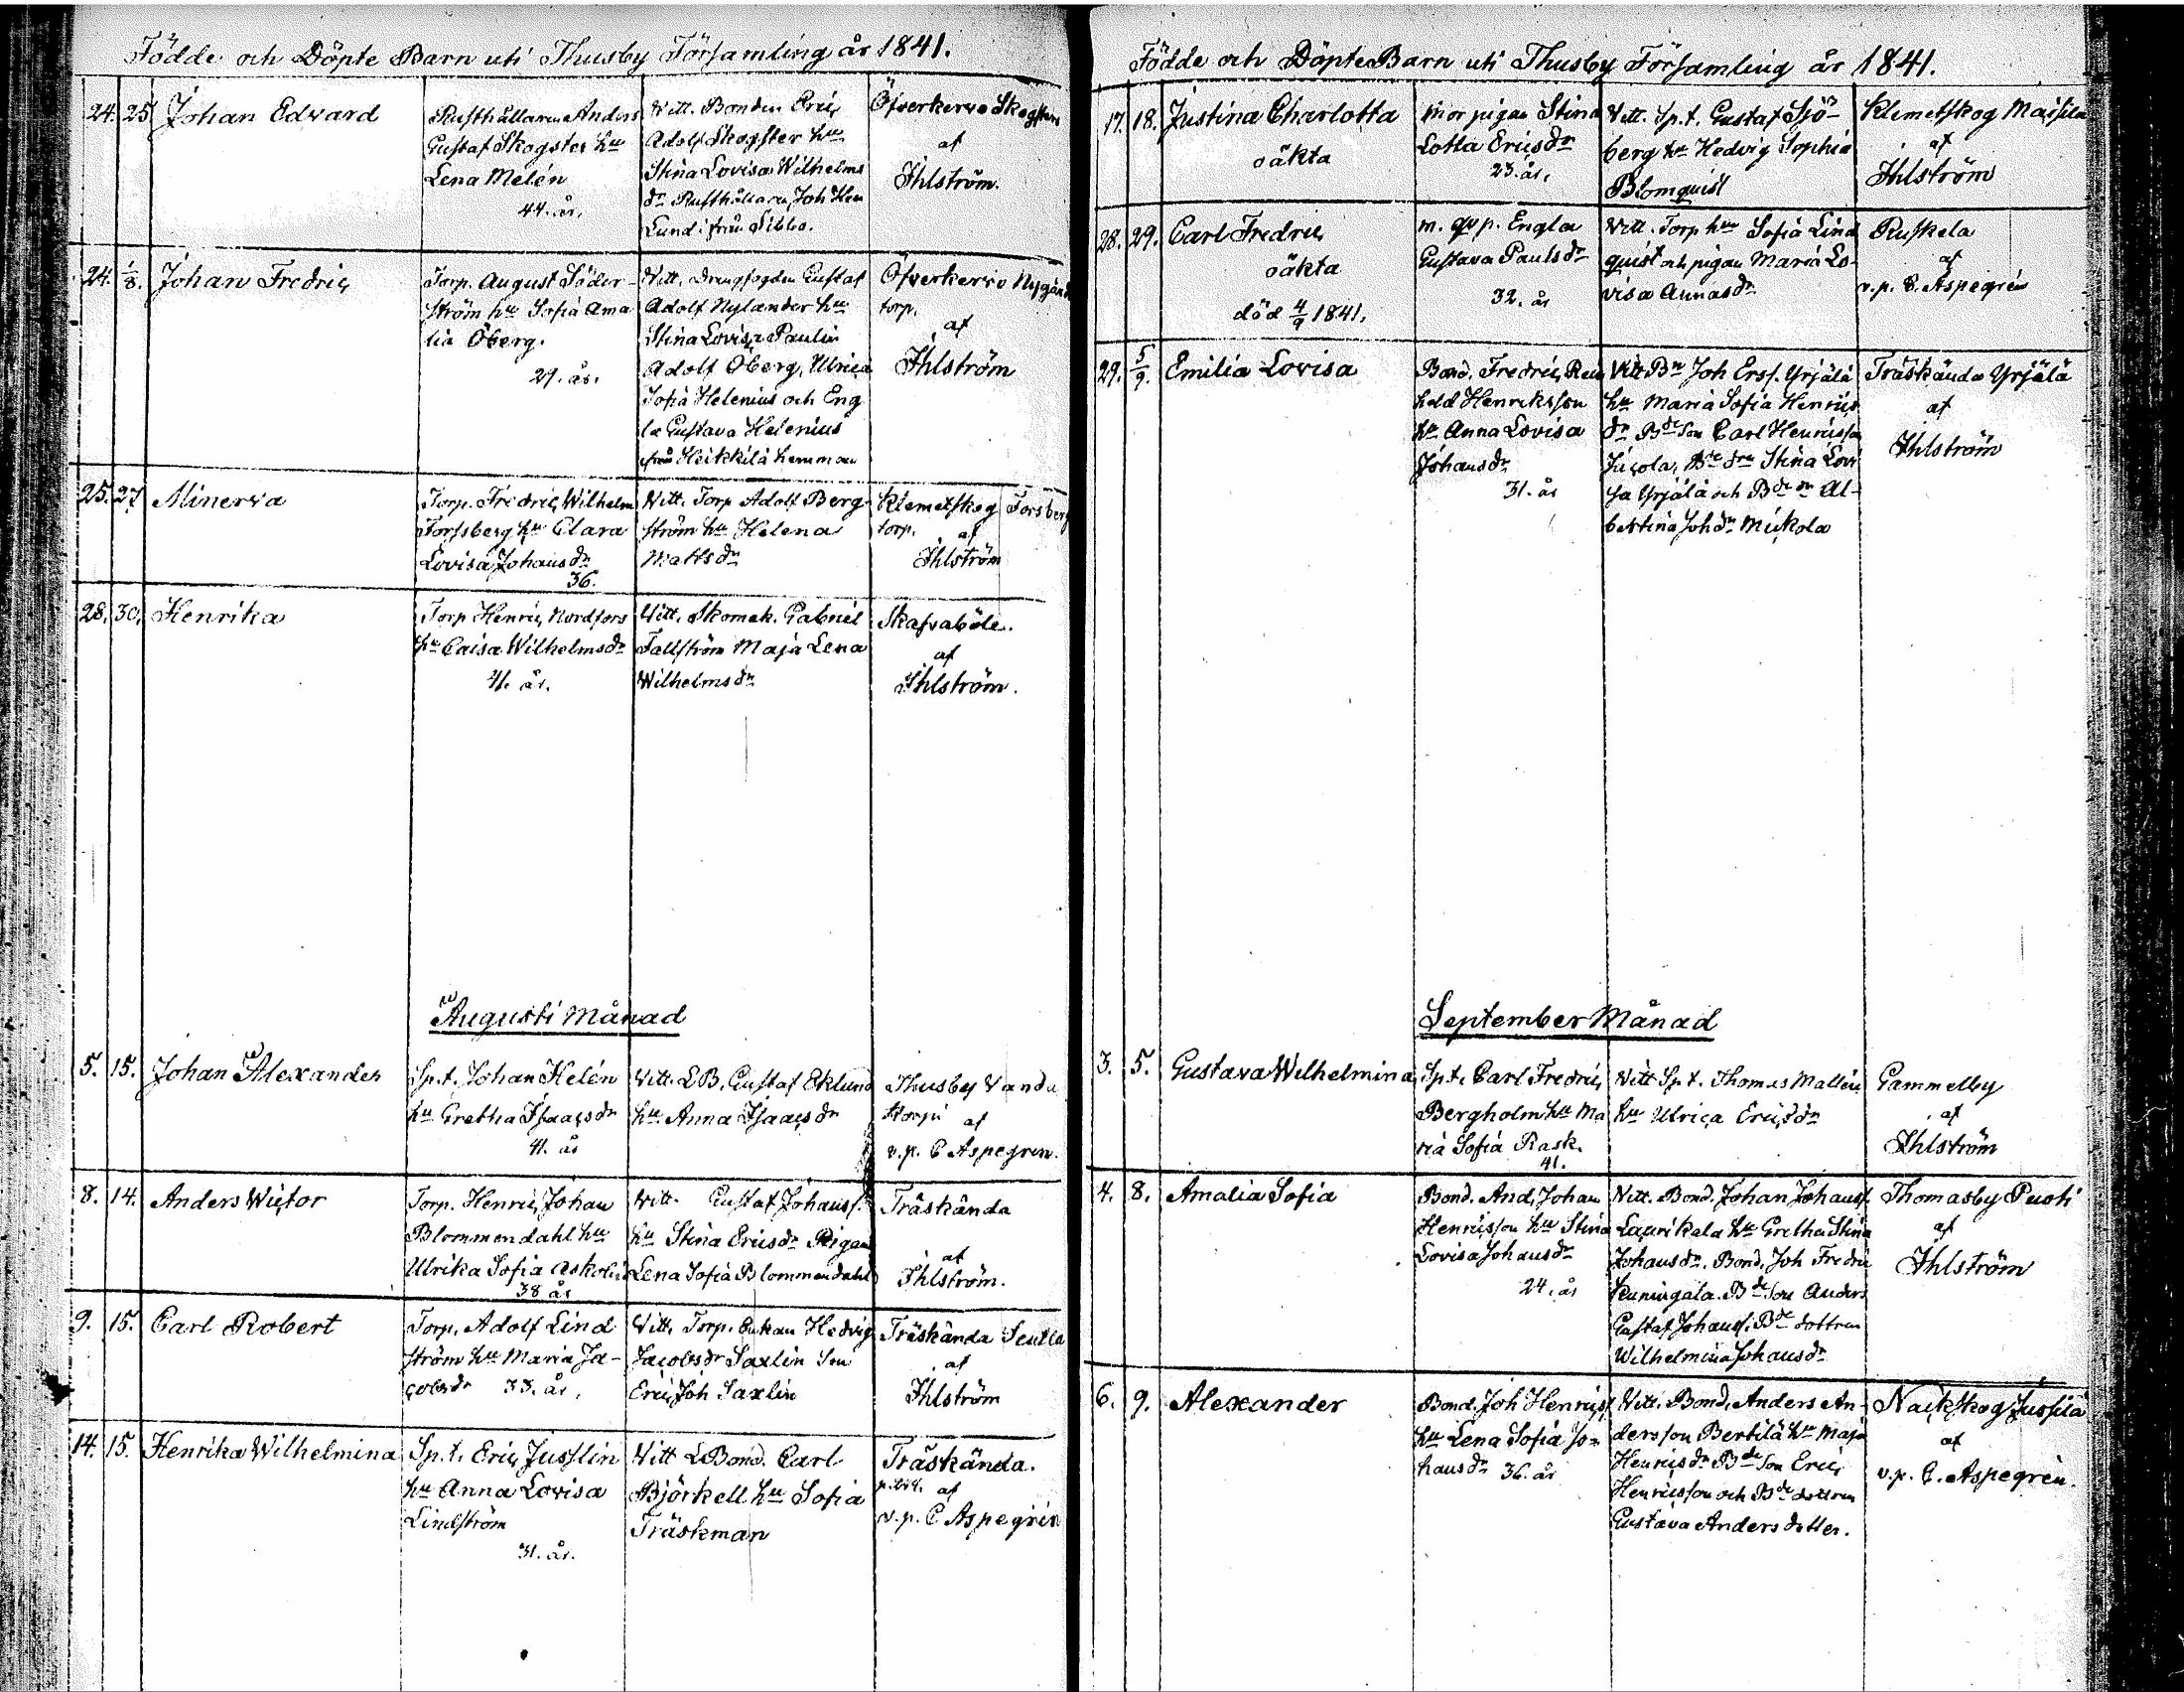 Födde och Döpte Barn uti Thusby Församling år 1841.
24. 25 Johan Edvard
Rusthållaren Anders
Gustaf Skogster hu
Lena Melén
44. år.
Vitt. Bonden Eric
Adolf Skogster hu
Stina Lovisa Wilhelms
dr Rusthållaren Joh Hen
Lund från Sibbo.
Öfverkervo Skogsters
af
Ihlström.
24. 1/8. Johan Fredric
Torp. August Söder-
ström hu Sofia Ama
lia Öberg.
29. år.
Vitt. Drengfogden Gustaf
Adolf Nylander hu
Stina Lovisa Paulin
Adolf Öberg, Ulrica
Sofia Helenius och Eng
la Gustava Helenius
från Heikkilä hemman
Öfverkervo Nygård
torp.
af
Ihlström
25. 27 Minerva
Torp. Fredric Wilhelm
Forssberg hu Clara
Lovisa Johansdr
36.
Vitt. Torp Adolf Berg
ström hu Helena
Mattsdr
Klemetskog Forsberg
torp. af
Ihlström
28. 30. Henrika
Torp Henric Nordfors
hu Caisa Wilhelmsdr
41. år.
Vitt. Skomak. Gabriel
Fallström Maja Lena
Wilhelmsdr
Skafvaböle.
af
Ihlström.
Augusti Månad
5. 15. Johan Alexander
Sp.t. Johan Helén
hu Gretha Isaacsdr
41. år
Vitt. L.B. Gustaf Eklund
hu Anna Isaacsdr
Thusby Vanda
torp af
v.p. C Aspegren.
8. 14. Anders Victor
Torp. Henric Johan
Blommendahl hu
Ulrika Sofia Askolin
38 år
Vitt. Gustaf Johanss.
hu Stina Ericsdr Pigan
Lena Sofia Blommendahl
Träskända
af
Ihlström.
9. 15. Carl Robert
Torp. Adolf Lind
ström hu Maria Ja-
cobsdr 33. år.
Vitt. Torp. Enkan Hedvig
Jacobsdr Saxlin Son
Eric Joh Saxlin
Träskända Seutla
af
Ihlström
14. 15. Henrika Wilhelmina
Sp.t. Eric Jusslin
hu Anna Lovisa
Lindström
31. år.
Vitt L Bond. Carl
Björkell hu Sofia
Träskman
Träskända.
af
v.p. C Aspegrén
Födde och Döpte Barn uti Thusby Församling år 1841.
17. 18. Justina Charlotta
oäkta
mor pigan Stina
Lotta Ericsdr
23. år.
Vitt. Sp.t. Gustaf Sjö-
berg hu Hedvig Sophia
Blomquist
Klemetskog Maisila
af
Ihlström
28. 29. Carl Fredric
oäkta
död 4/9 1841.
m. qv p. Engla
Gustava Paulsdr
32. år
Vitt. Torp hu Sofia Lind
quist och pigan Maria Lo-
visa Annasdr
Ruskela
af
v.p. C. Aspegrén
29. 5/9. Emilia Lovisa
Bond. Fredric Rein
hold Henriksson
hu Anna Lovisa
Johansdr
31. år
Vitt Bn Joh Erss. Yrjälä
hu Maria Sofia Henrics
dr Bde Son Carl Henricsson
Jucola, Bde drn Stina Lovi
sa Yrjälä och Bde dn Al-
bertina Johdr Mickola
Träskända Yrjälä
af
Ihlström
September Månad
3. 5. Gustava Wilhelmina
Sp.t. Carl Fredric
Bergholm hu Ma
ria Sofia Rask.
41.
Vitt Sp.t. Thomas Mallén
hu Ulrica Ericsdr
Gammelby
af
Ihlström
4. 8. Amalia Sofia
Bond. And. Johan
Henricsson hu Stina
Lovisa Johansdr
24. år
Vitt. Bond. Johan Johanss.
Laurikala hu Gretha Stina
Johansdr. Bond. Joh Fredric
Kuningala. Bde Son Anders
Gustaf Johanss. Bde dottren
Wilhelmina Johansdr
Thomasby Puoti
af
Ihlström
6. 9. Alexander
Bond. Joh Henricss
hu Lena Sofia Jo-
hansdr 36. år
Vitt. Bond. Anders An-
dersson Bertilä hu Maja
Henricsdr Bde Son Eric
Henricsson och Bde dottren
Gustava Andersdotter.
Nackskog Jussila
af
v.p. C. Aspegrén.